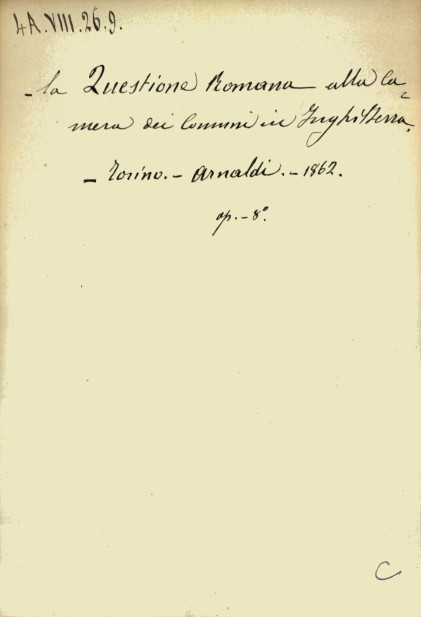 4A.VIII.26.9.
- la Questione Romana alla Ca=
mera dei Comuni in Inghilterra.
- Torino. - Arnaldi. - 1862.
op. - 8º.
C